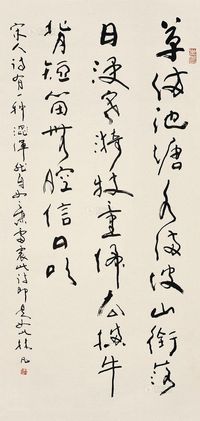 草满池塘水满陂山衔落
日浸寒漪牧童归去横牛
背短笛无腔信口吹
宋人诗有一种浑浑然自如意雷震此诗即是也林凡